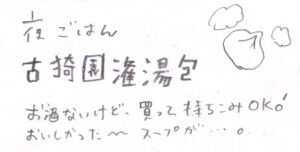 夜ごはん
古猗園灌湯包
お酒ないけど、買って持ちこみOKó
おいしかった〜 スープが…。